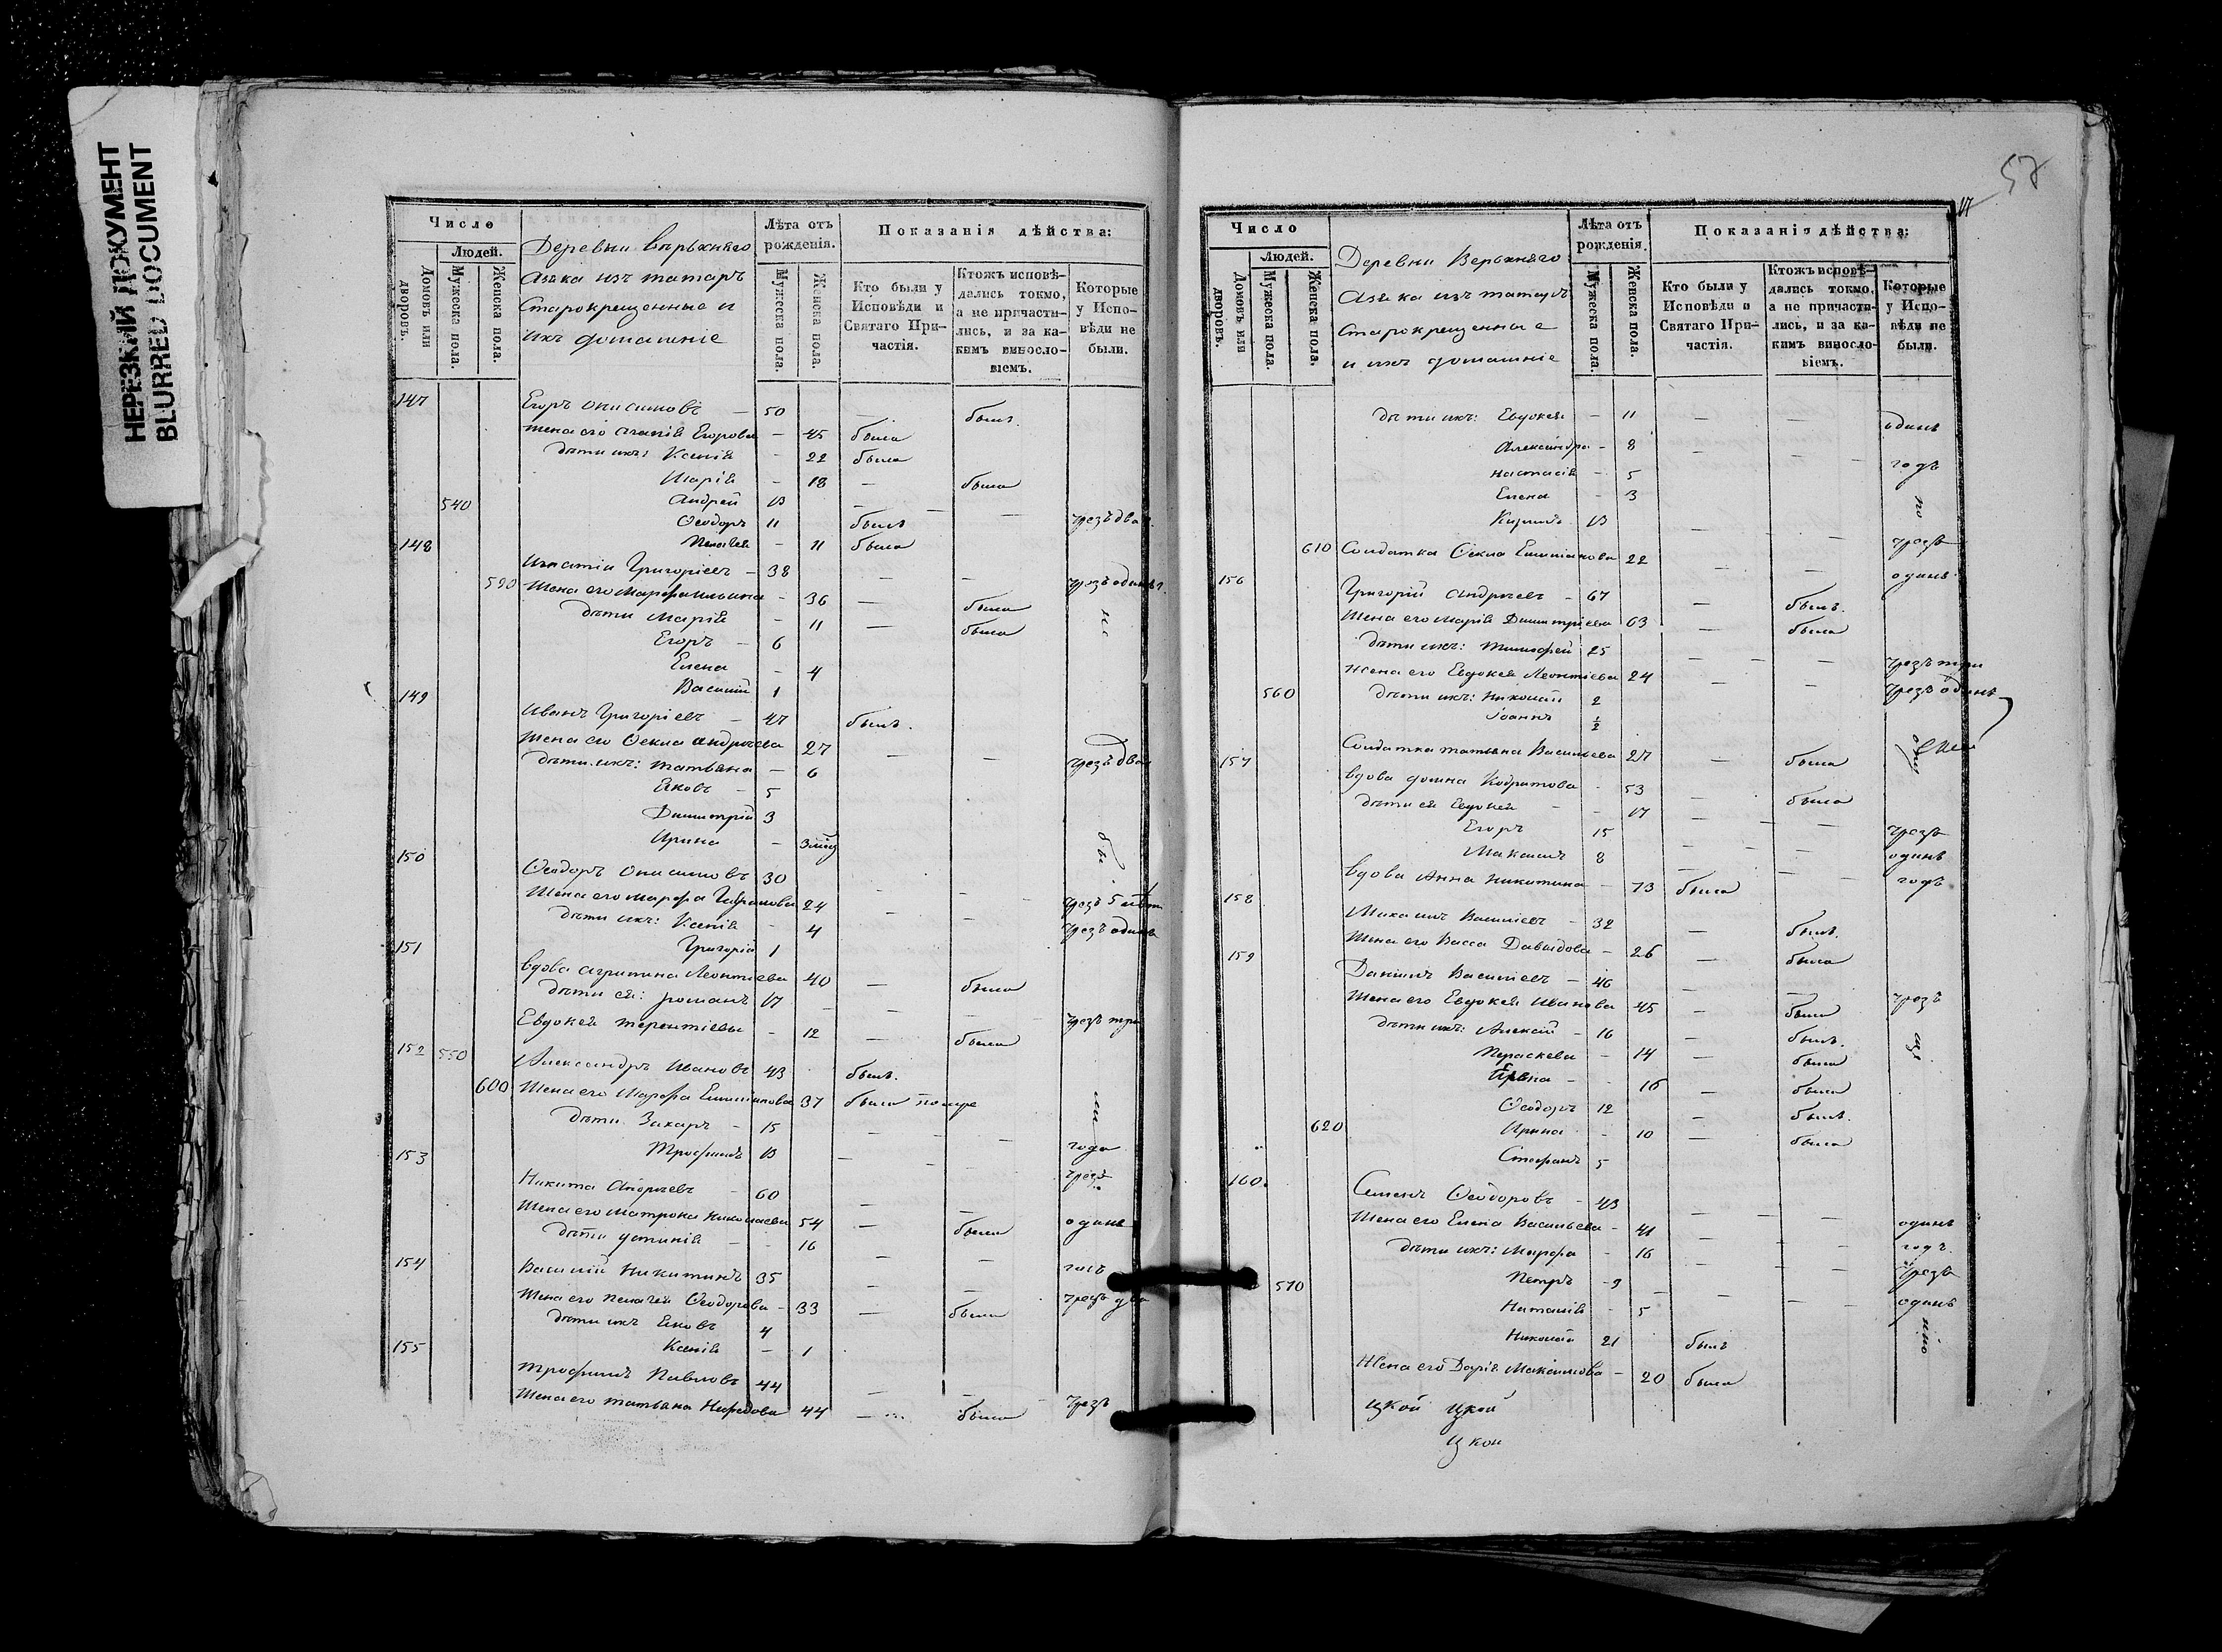 НЕРЕЗКИЙ ДОКУМЕНТ
BLURRED DOCUMENT
Число
Людей.
Домовъ или дворовъ.
Мужеска пола.
Женска пола.
Деревни Верьхняго
Азяка изъ татаръ
Старокрещенные и
ихъ домашніе
Лѣта отъ рожденія.
Мужеска пола.
Женска пола.
Показанія дѣйства:
Кто были у Исповѣди и Святаго Причастія.
Ктожъ исповѣдались токмо, а не причастились, и за какимъ винословіемъ.
Которые у Исповѣди не были.
147 Егоръ Онисимовъ — 50 — былъ
жена его Агапія Егорова — 45 была
дѣти ихъ: Ксенія — 22 была
Марія — 18 — была
540 Андрей 13 — —
Ѳеодоръ 11 былъ чрезъ два
148 Пелагея — 11 была
Игнатіи Григоріевъ — 38 — — чрезъ одинъ г.
590 Жена его Марфа Ильина — 36 — была
дѣти Марія — 11 — была не
Егоръ — 6
Елена — 4
Василій 1
149
Иванъ Григоріевъ — 47 былъ.
Жена его Ѳекла Андреева 27 — —
дѣти ихъ: Татьяна — 6 чрезъ два
Яковъ — 5
Димитрій 3
Ирина — 3 мѣс бы
150
Ѳеодоръ Онисимовъ 30 — —
Жена его Марфа 24 — — чрезъ 5 лѣтъ
дѣти ихъ: Ксенія — 4 чрезъ одинъ
151 Григорій 1
вдова Агрипина Леонтіева 40 — была
дѣти ея: Романъ 17 — — —
Евдокея Терентіева — 12 была чрезъ три
152 550
Александръ Ивановъ 43 былъ.
600 Жена его Марфа Емилианова 37 была ли
дѣти Захаръ — 15 — — —
Трофимъ 13 — года
153 чрезъ
Никита Андреевъ — 60 — —
Жена его Матрона Николаева 54 — была одинъ
дѣти Устинія — 16 — —
154 Василій Никитинъ 35 — —
Жена его Пелагея Ѳеодорова — 33 — была чрезъ два
дѣти ихъ Яковъ 4
155 Ксенія — 1
Трофимъ Павловъ 44 — —
Жена его Татьяна Нефедова 44 — была чрезъ
57
17
Число
Людей.
Домовъ или дворовъ.
Мужеска пола.
Женска пола.
Деревни Верьхняго
Азяка изъ татаръ
Старокрещенные
и ихъ домашніе
Лѣта отъ рожденія.
Мужеска пола.
Женска пола.
Показанія дѣйства:
Кто были у Исповѣди и Святаго Причастія.
Ктожъ исповѣдались токмо, а не причастились, и за какимъ винословіемъ.
Которые у Исповѣди не были.
дѣти ихъ: Евдокея — 11 — — одинъ
Александра — 8 — —
Настасія — 5 годъ
Елена — 3
13 — по
610 Солдатка Ѳекла Емилианова 22 — — чрезъ
одинъ
156
Григорій Андреевъ — 67 — былъ.
Жена его Марія Димитріева 63 — была
дѣти ихъ: Тимофей 25 — — — чрезъ три
жена его Евдокея Леонтіева 24 — — чрезъ одинъ
560 дѣти ихъ: Николай 2
Іоаннъ ½
157 Солдатка Татьяна Васильева 27 — была
вдова Домна Кодратова — 53 — была
дѣти ея Евдокея — 17 — —
Егоръ 15 — — чрезъ
Максимъ 8 — — одинъ
годъ
вдова Анна Никитина — 73 была
158
Максимъ Василіевъ — 32 — былъ.
Жена его Васса Давыдова — 26 — была
159
Даніилъ Василіевъ — 46 — — чрезъ
Жена его Евдокея Иванова 45 — была
дѣти ихъ: Алексѣй — 16 — былъ.
Параскева — 14 — была
— 16 — была
Ѳеодоръ 12 — былъ.
620 Ирина — 10 — была
Стефанъ 5
160
Семенъ Ѳеодоровъ — 43 — — —
Жена его Елена Васильева — 41 — — одинъ
дѣти ихъ: Марфа — 16 — — годъ.
570 Петръ — 9 — — чрезъ
Наталія — 5 — — одинъ
Николай 21 былъ
Жена его Дарія Максимова — 20 была
цкой цкой
цкой